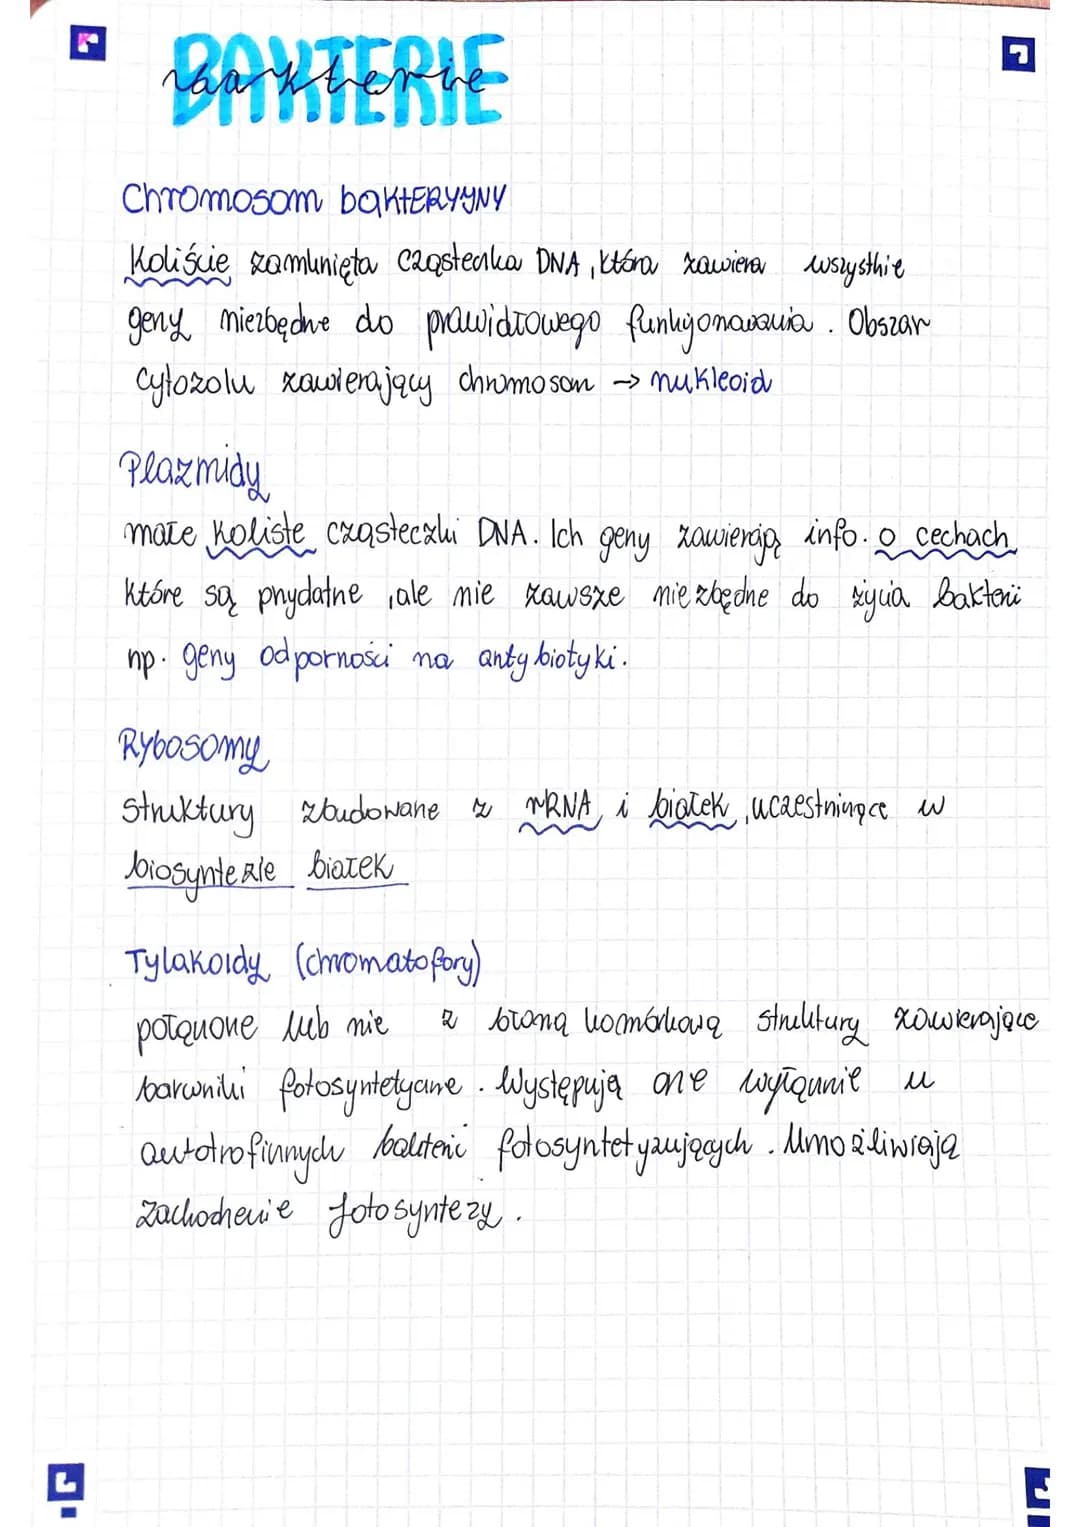 BAKTERIE
bakterie
Chromosom bakteryjny
Koliście zamknięta cząsteczka DNA, która zawiera wszystkie
geny niezbędne do prawidłowego funkcjonowania. Obszar
cytozolu zawierający chromosom → nukleoid
Plazmidy
małe koliste cząsteczki DNA. Ich geny zawierają info. o cechach
które są przydatne, ale nie zawsze niezbędne do życia bakterii
np. geny odporności na antybiotyki.
Rybosomy
struktury zbudowane z rRNA i białek, uczestniczące w
biosyntezie białek
Tylakoidy (chromatofory)
połączone lub nie z błoną komórkową struktury zawierające
barwniki fotosyntetyczne. Występują one wyłącznie u
autotroficznych bakterii fotosyntetyzujących. Umożliwiają
zachodzenie fotosyntezy.